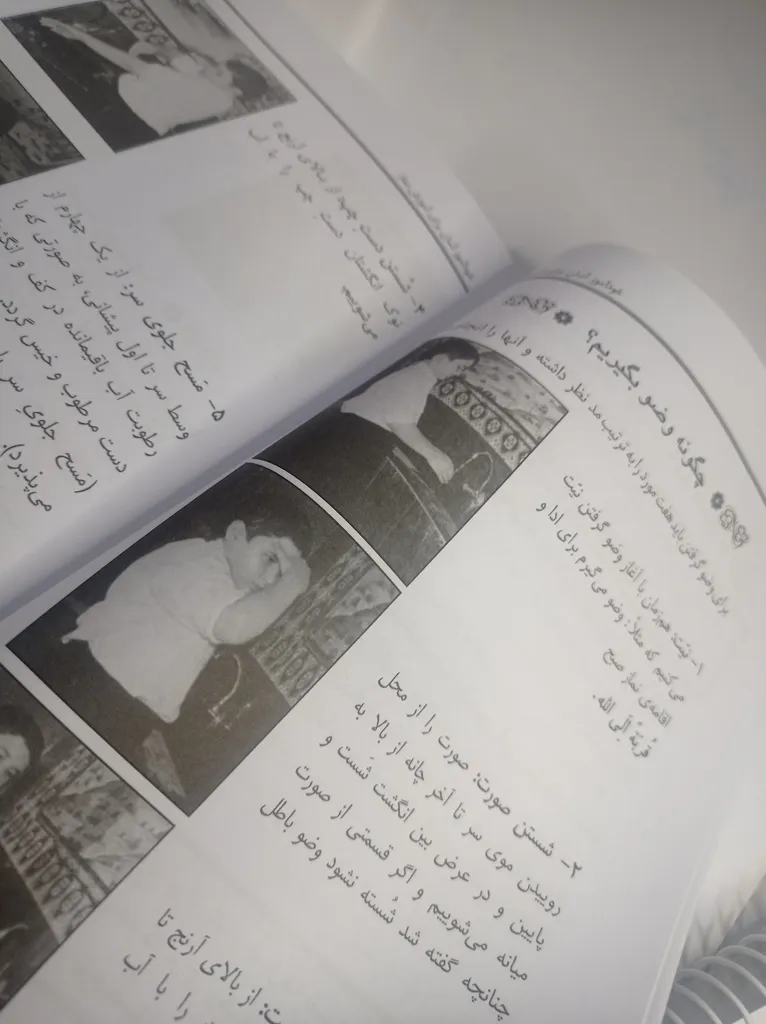 چگونه وضو بگیریم؟
برای وضو گرفتن باید هفت مورد را به ترتیب مد نظر داشته و آنها را انجام
۱- نیّت: همزمان با آغاز وضو گرفتن نیّت
می‌کنیم که مثلاً: وضو می‌گیرم برای ادا و
اقامه‌ی نماز صبح
قُربَةً اِلَی الله.
۲- شستن صورت: صورت را از محل
روییدن موی سر تا آخر چانه از بالا به
پایین و در عرض بین انگشت شست و
میانه می‌شوییم و اگر قسمتی از صورت
چنانچه گفته شد شُسته نشود وضو باطل
از بالای آرنج تا
را با آب
۴- شستن دست چپ: از بالای آرنج تا
نوک انگشتان دست چپ را با آب
می‌شوییم.
۵- مَسح جلوی سر: از یک چهارم از
وسط سر تا اول پیشانی، به صورتی که با
رطوبت آب باقیمانده در کف و
دست مرطوب و خیس گردد.
(مَسح جلوی سر
می‌پذیرد).